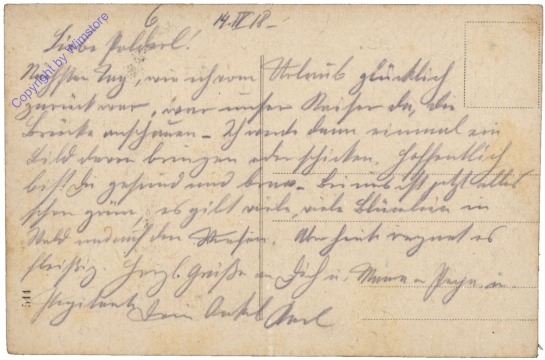 6 14.IV.18 –
Liebe Polderl!
Nächsten Tag, wie ich vom Urlaub glücklich
zurück war, war unser Kaiser da, die
Brücke anschauen – Ich werde dann einmal ein
Bild davon bringen oder schicken. Hoffentlich
bist Du gesund und brav – Bei uns ist jetzt alles
schon grün, es gibt viele, viele Blümlein im
Wald und auf den Wiesen. Aber heute regnet es
fleißig. Herzl. Grüße an Dich u. Mama u. Papa u.
Dein Onkel Karl
544
Copyright by Wimstore